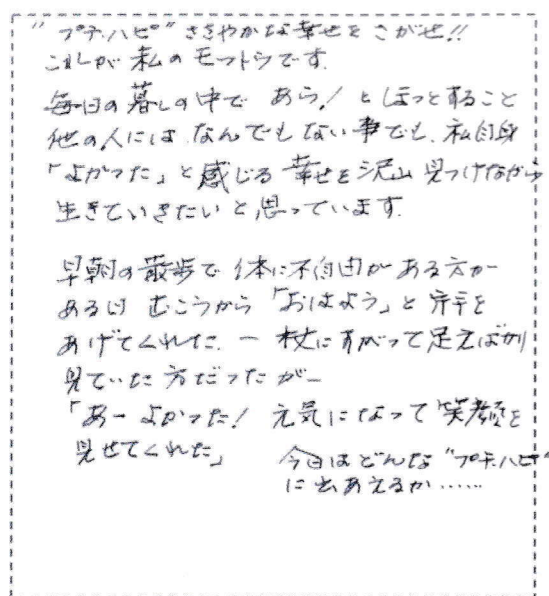 "プチ.ハピ" ささやかな幸せを さがせ!!
これが 私の モットウです.
毎日の暮しの中で あら! と ほっとすること
他の人には なんでもない事でも、私自身
「よかった」と感じる 幸せを沢山 見つけながら
生きていきたいと思っています.
早朝の散歩で 体に不自由がある方が
ある日 むこうから「おはよう」と片手を
あげてくれた. ー 杖にすがって足元ばかり
見ていた方だったがー
「あー よかった! 元気になって 笑顔を
見せてくれた」
今日はどんな "プチ.ハピ"
に出あえるか……